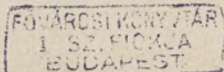 FŐVÁROSI KÖNYVTÁR
1 SZ. FIÓKJA
BUDAPEST